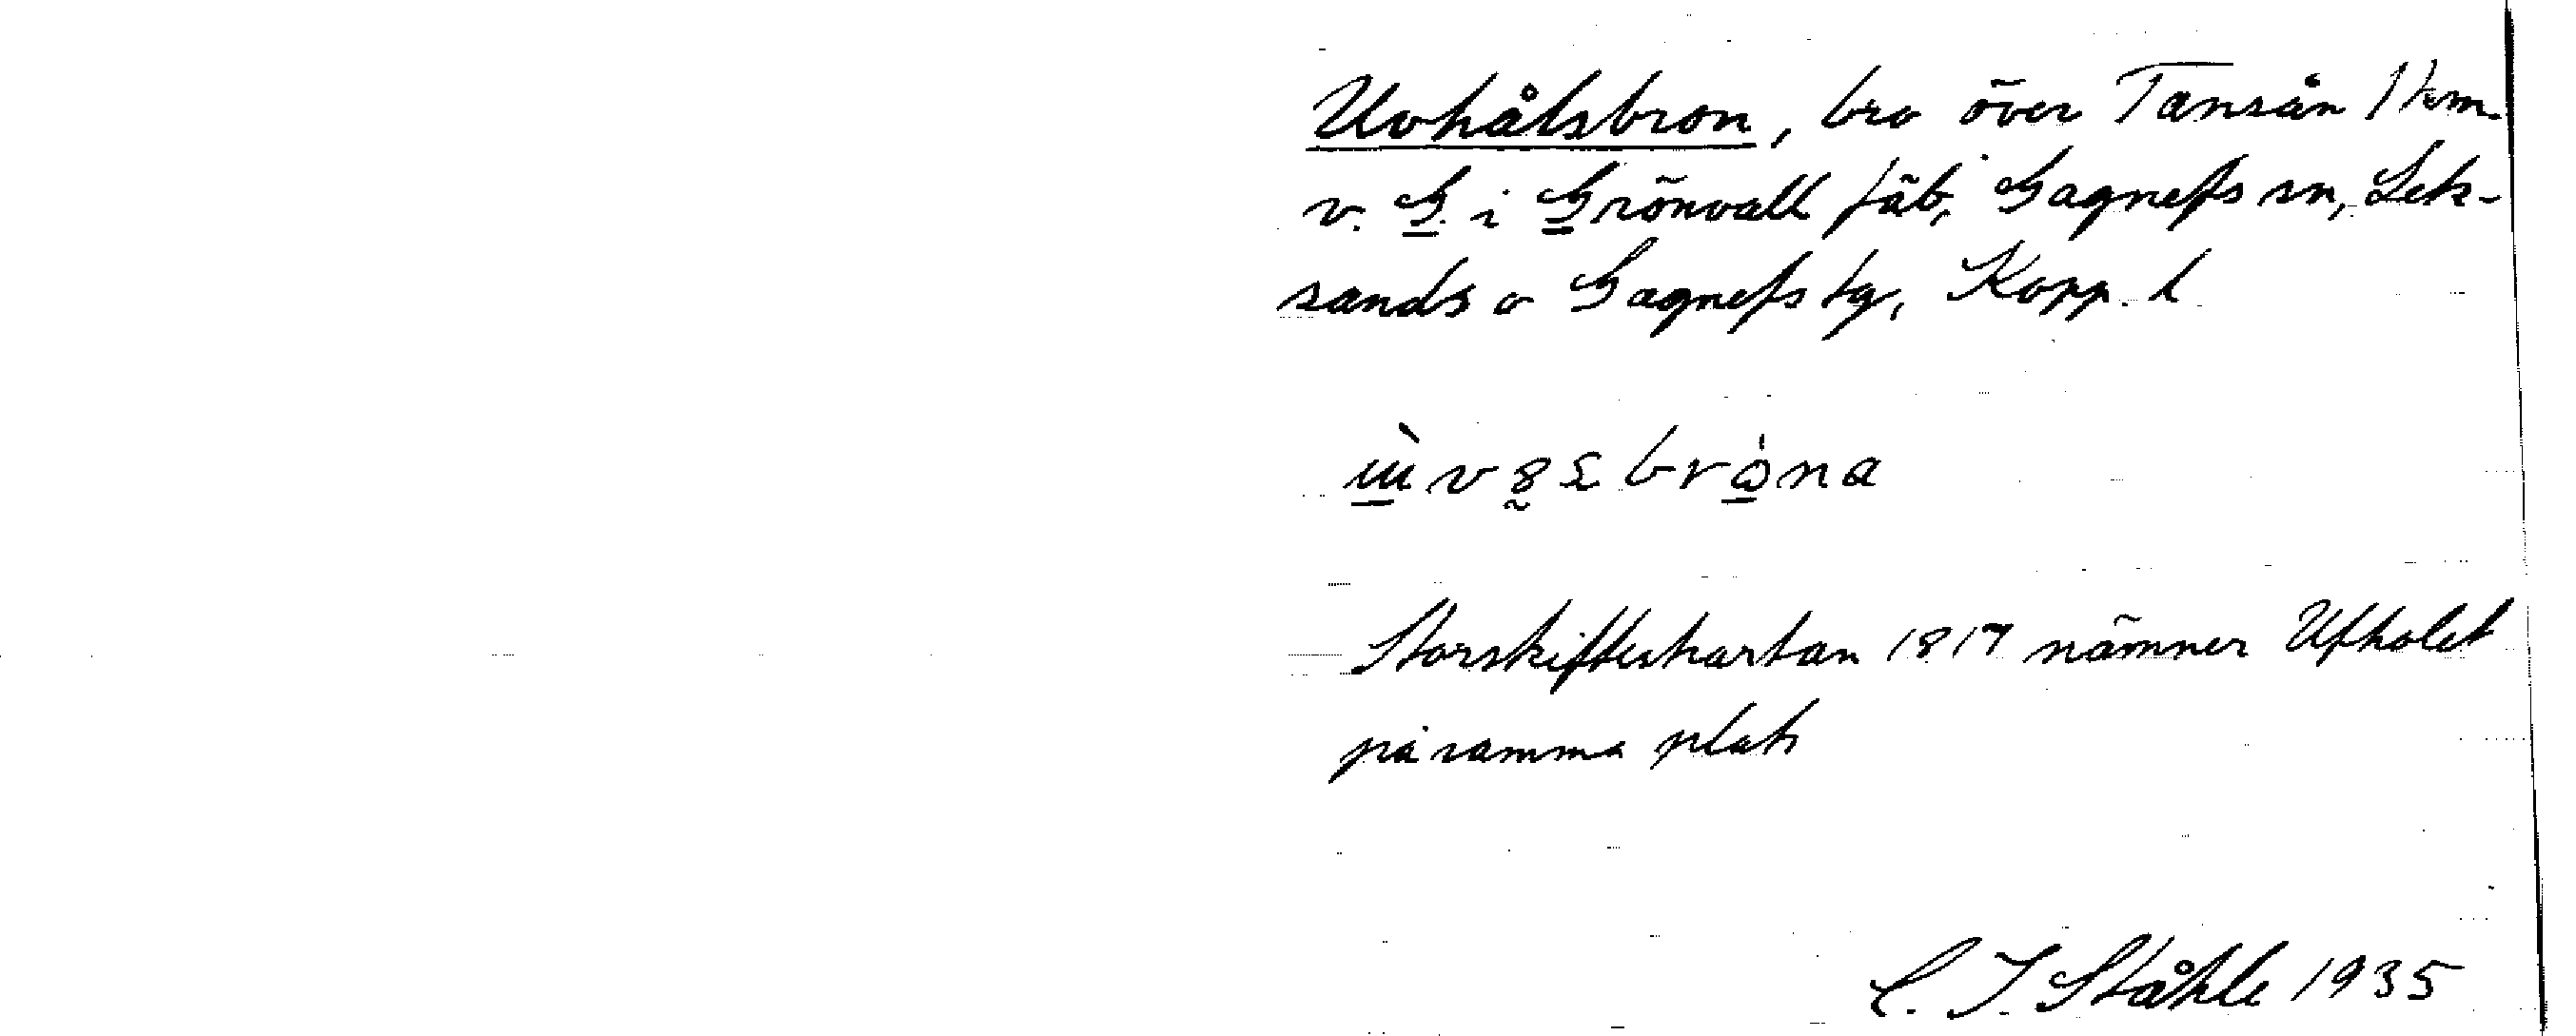 Uvhålsbron, bro över Tansån 1 km
v. G. i Grönvall fäb, Gagnefs sn, Lek-
sands o Gagnefs tg, Kopp. l
Storskifteskartan 1817 nämner Ufholet
på samma plats
C. I. Ståhle 1935